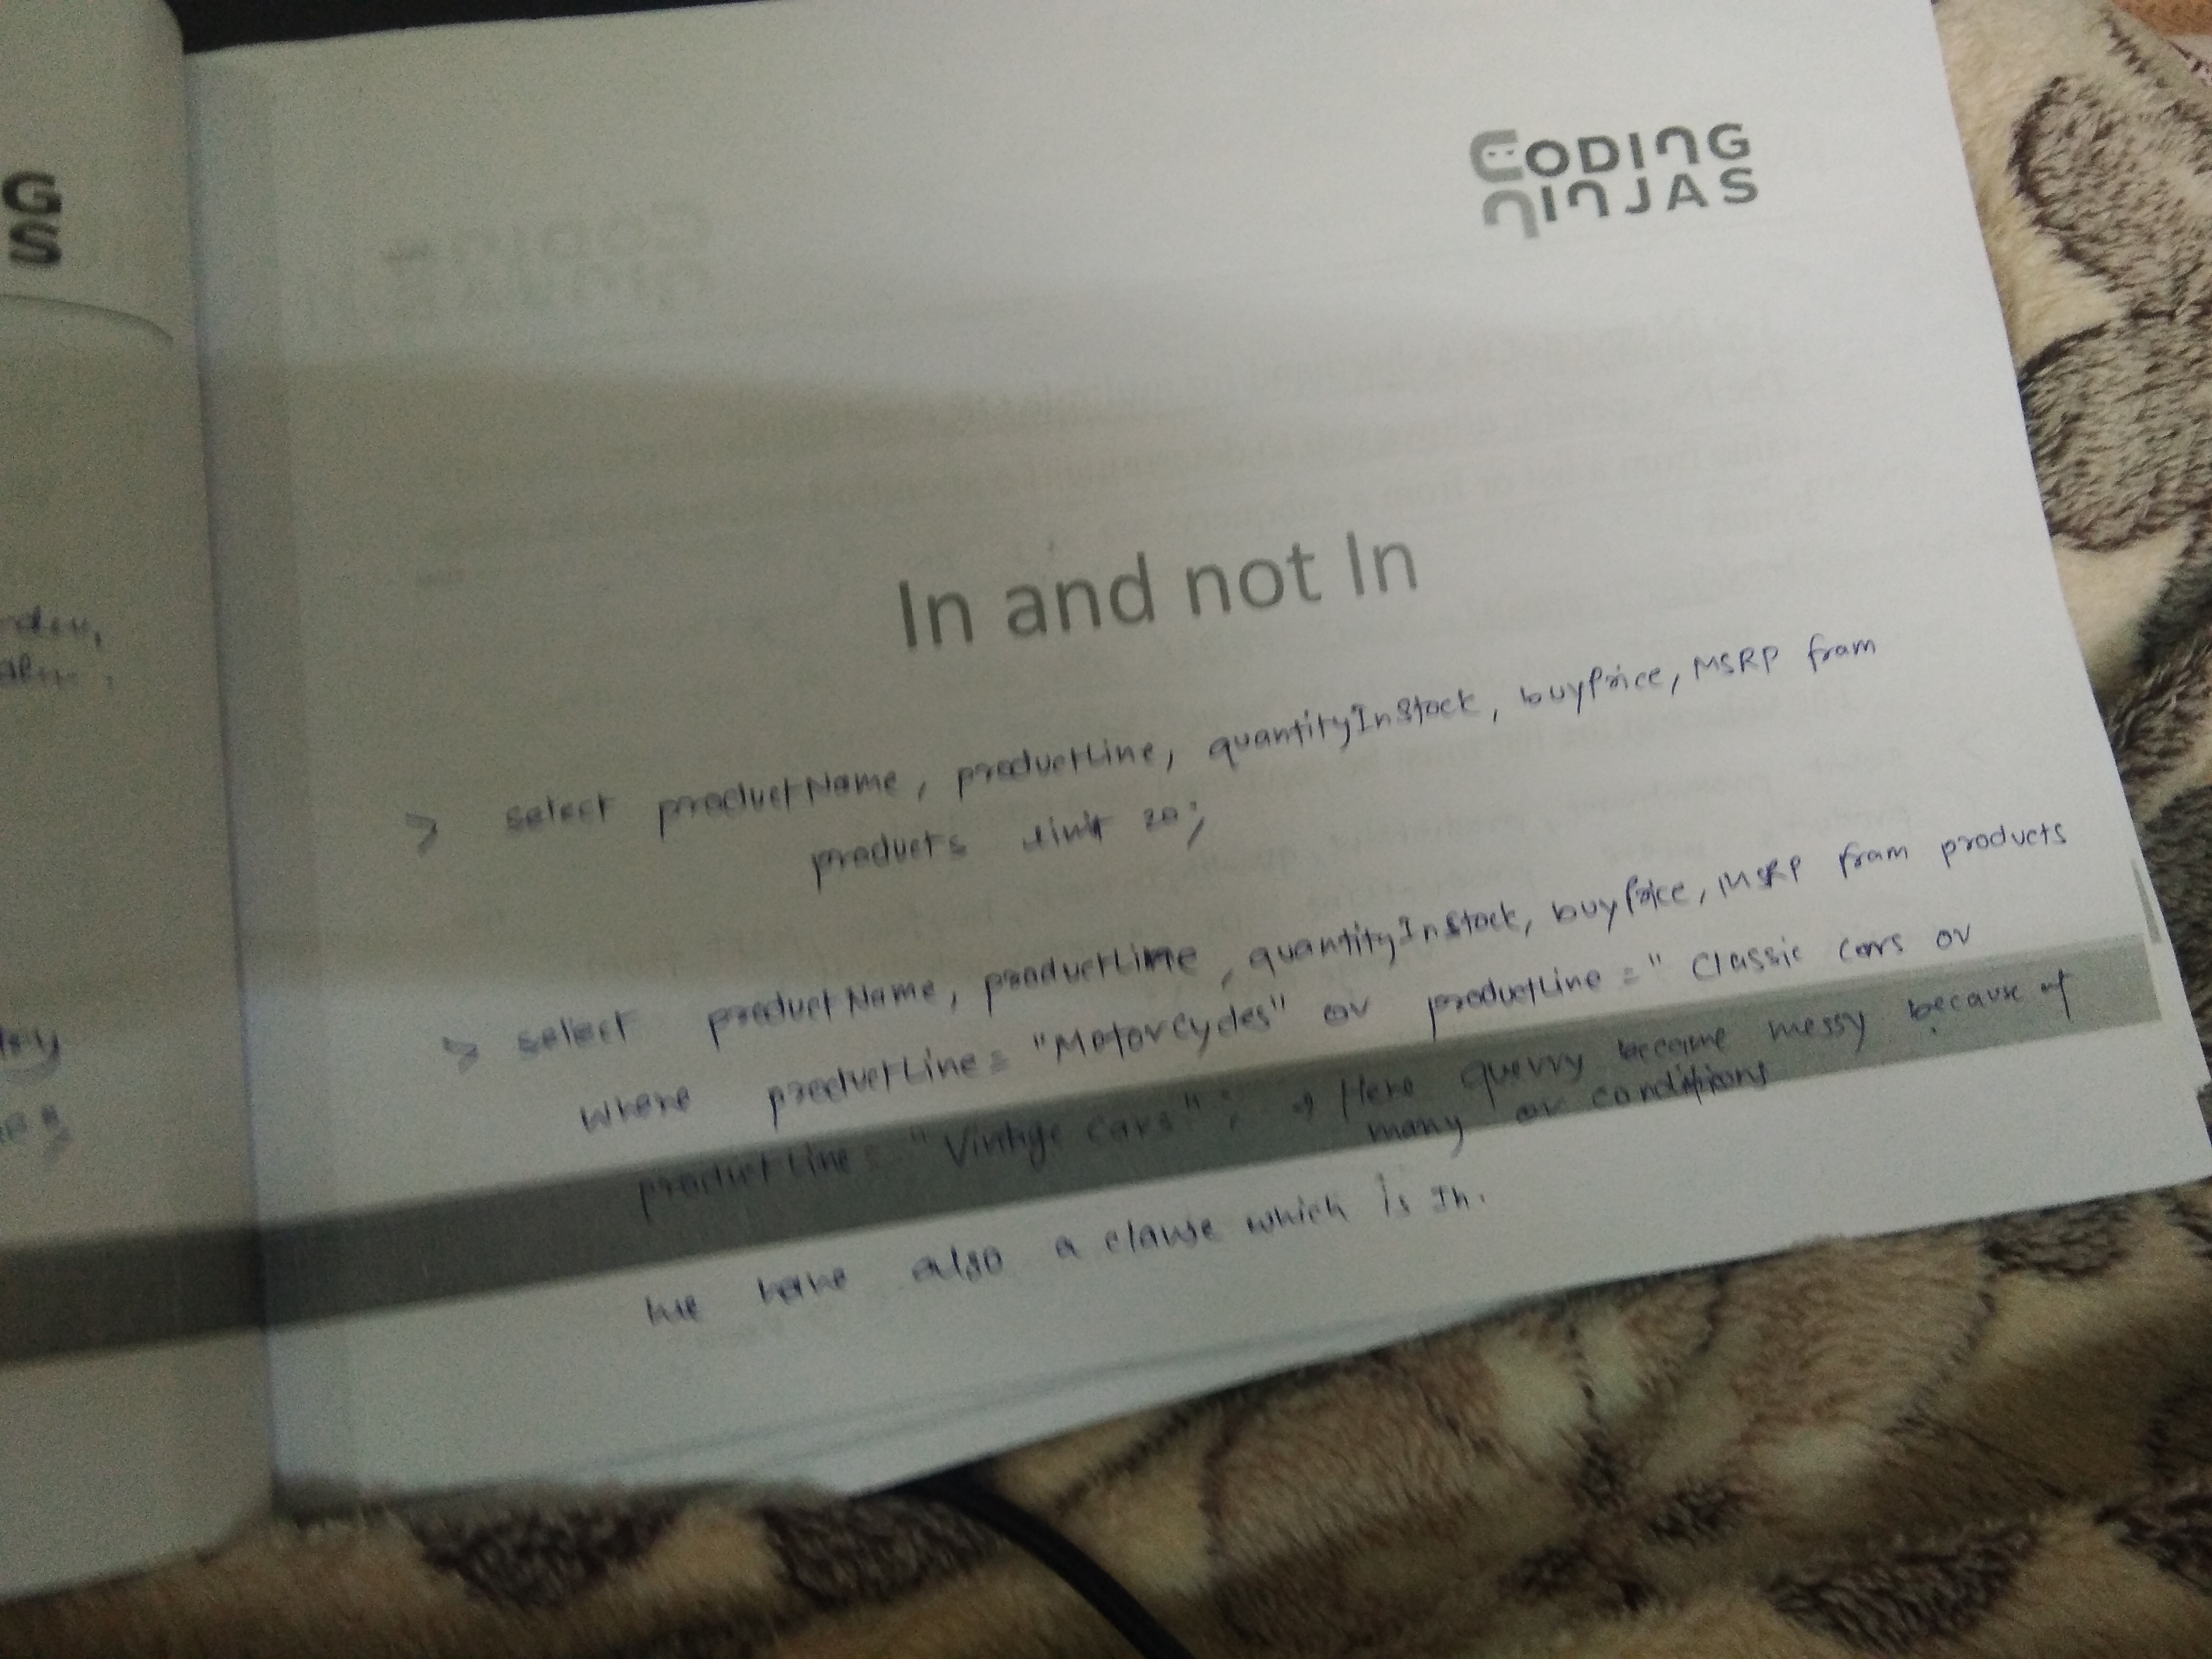 G
S
CODING
NINJAS
In and not In
> select productName, productLine, quantityInStock, buyPrice, MSRP from
products limit 20;
> select productName, productLine, quantityInStock, buyPrice, MSRP from products
where productLine = "Motorcycles" or productLine = " Classic cars or
productLine = "Vintage cars"; → Here querry become messy because of
many or conditions
we have also a clause which is In.